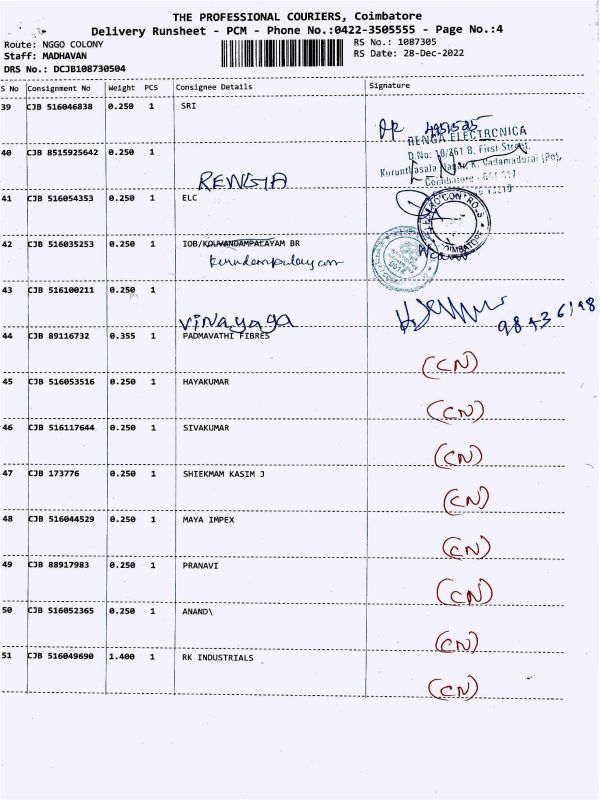 THE PROFESSIONAL COURIERS, Coimbatore
Delivery Runsheet - PCM - Phone No.:0422-3505555 - Page No.:4
Route: NGGO COLONY RS No.: 1087305
Staff: MADHAVAN RS Date: 28-Dec-2022
DRS No.: DCJB108730504
S No Consignment No Weight PCS Consignee Details Signature
39 CJB 516046838 0.250 1 SRI
RENGA ELECTRONICA
D.No: 10/261 B, First Street,
40 CJB 8515925642 0.250 1
Nagar, K. Vadamadurai (Po),
RENGIA Coimbatore - 641 017
41 CJB 516054353 0.250 1 ELC
42 CJB 516035253 0.250 1 IOB/KOUVANDAMPALAYAM BR
43 CJB 516100211 0.250 1
Vinayaga
44 CJB 89116732 0.355 1 PADMAVATHI FIBRES
(CN)
45 CJB 516053516 0.250 1 HAYAKUMAR
(CN)
46 CJB 516117644 0.250 1 SIVAKUMAR
(CN)
47 CJB 173776 0.250 1 SHIEKMAM KASIM J
(CN)
48 CJB 516044529 0.250 1 MAYA IMPEX
(CN)
49 CJB 88917983 0.250 1 PRANAVI
(CN)
50 CJB 516052365 0.250 1 ANAND\
(CN)
51 CJB 516049690 1.400 1 RK INDUSTRIALS
(CN)